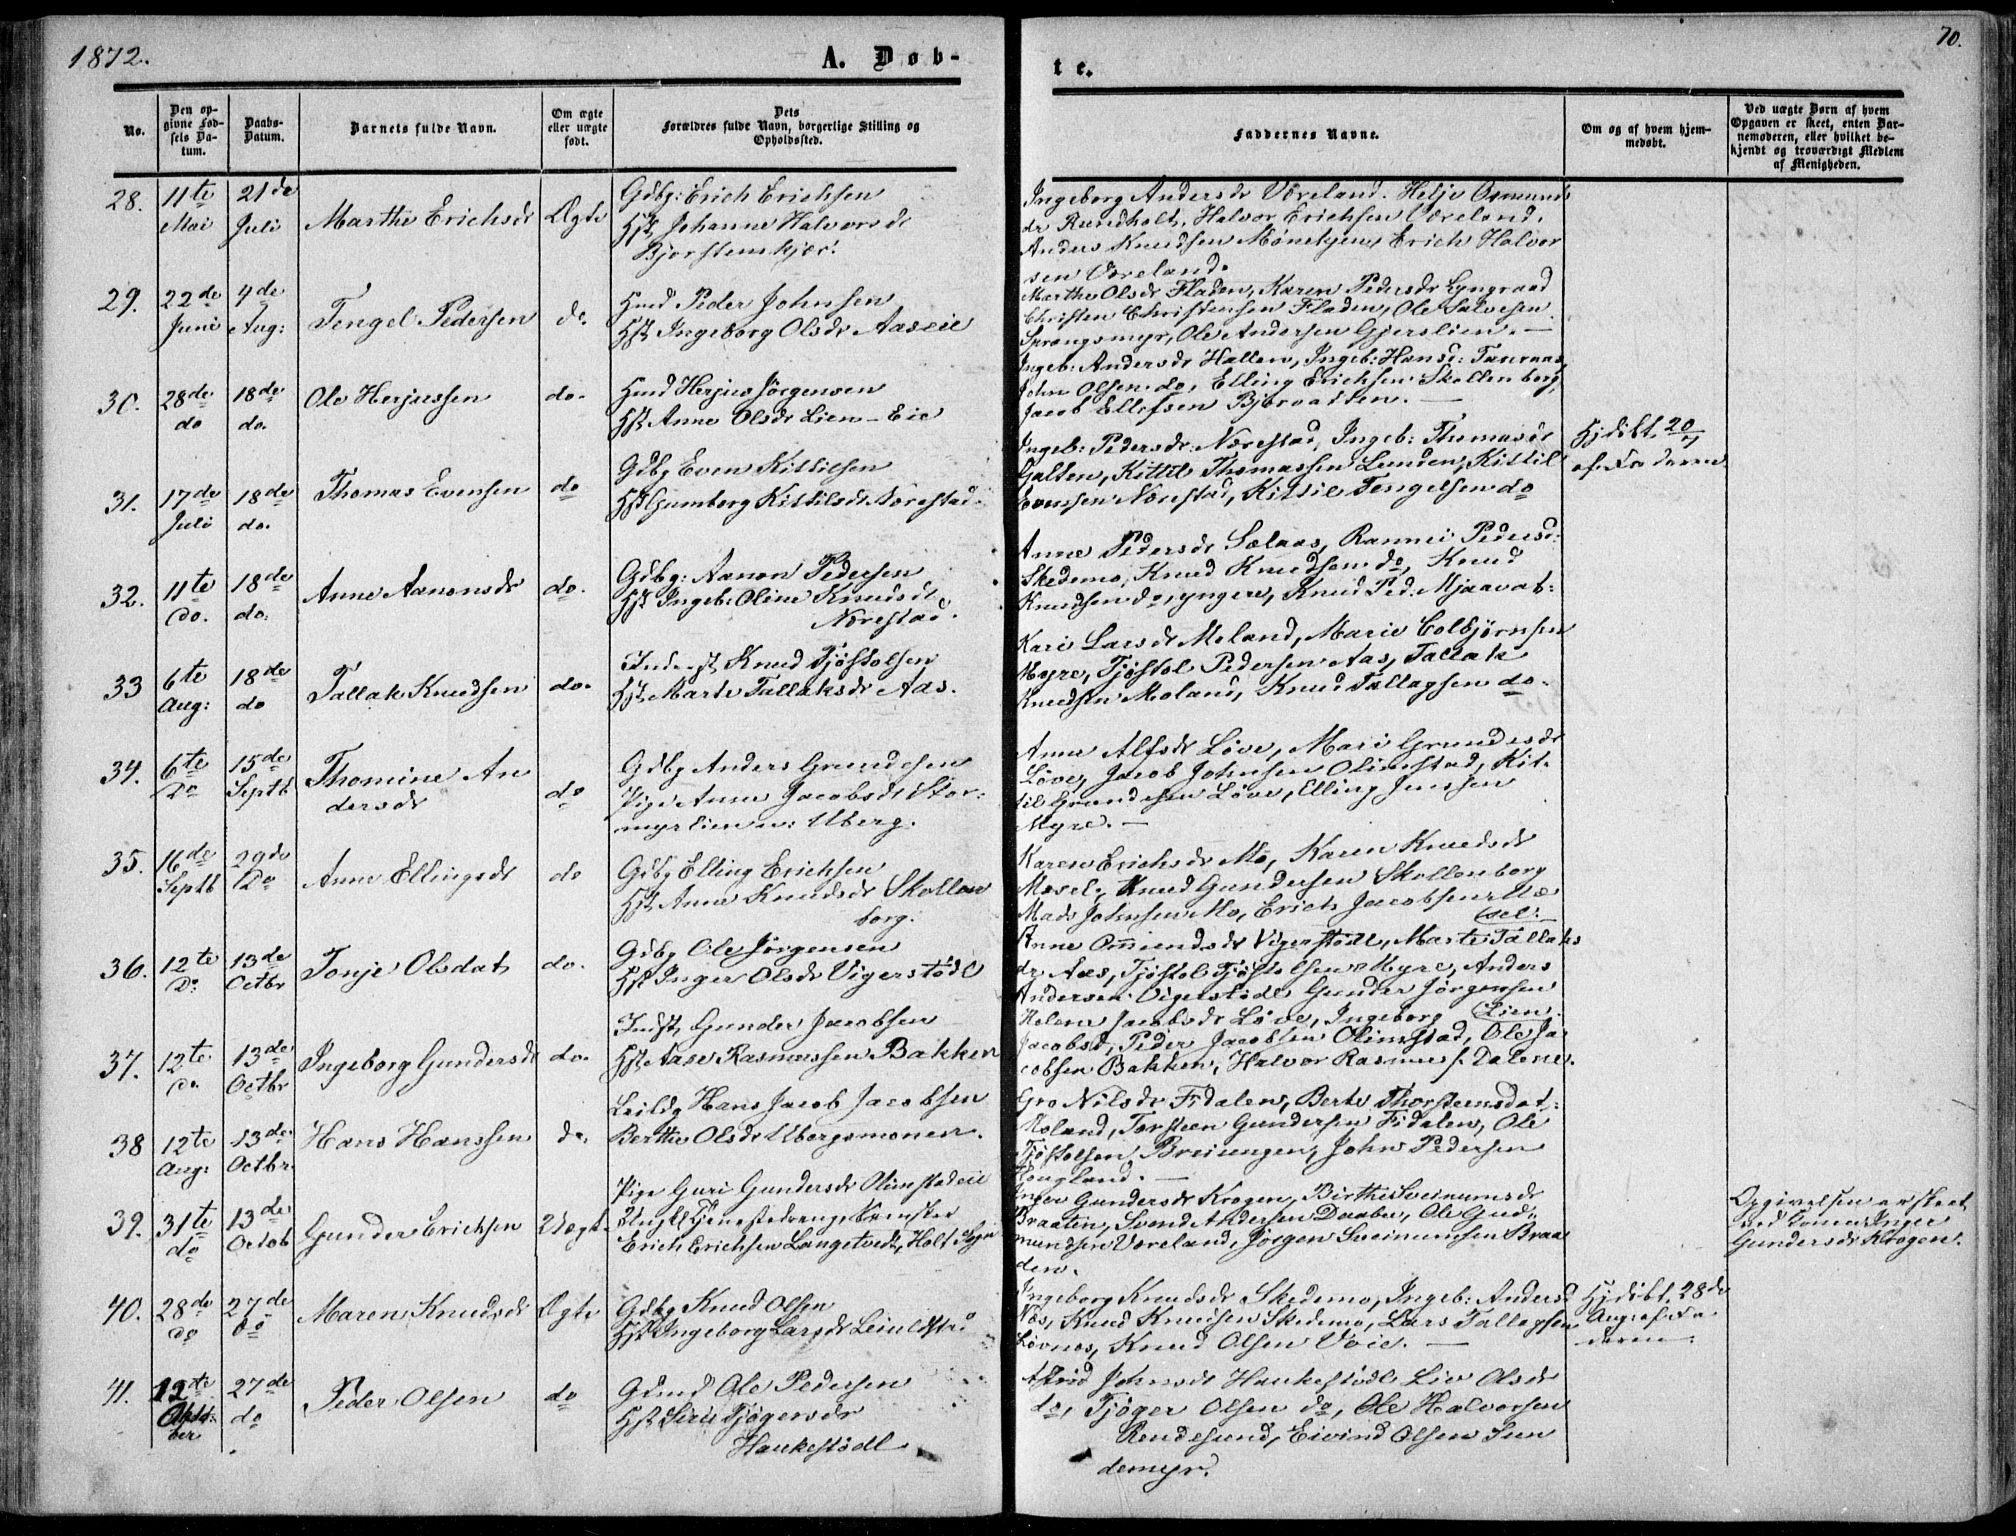 1872.
A. Døb-
te.
70.
No.
Den op-
givne Fød-
sels Da-
tum.
Daabs-
Datum.
Barnets fulde Navn.
Om ægte
eller uægte
født.
Dets
Forældres fulde Navn, borgerlige Stilling og
Opholdssted.
Faddernes Navne.
Om og af hvem hjem-
medøbt.
Ved uægte Børn af hvem
Opgaven er skeet, enten Bar-
nemoderen, eller hvilket be-
kjendt og troværdigt Medlem
af Menigheden.
28.
11te
Mai
21de
Juli
Marthe Erichsdr
Ægte
Gdbg: Erich Erichsen
Hst Johanne Halvorsdr
Bjorstemkjær.
Ingeborg Andersdr Væreland. Helje Osmunds
dr Rundholt, Halvor Erichsen Væreland,
Anders Knudsen Mønekjen, Erich Halvor
sen Væreland.
29.
22de
Juni
4de
Aug:
Tengel Pedersen
do.
Hmd Peder Johnsen
Hst Ingeborg Olsdr Aaseie
Marthe Olsdr Fladen, Karen Pedersdr Lyngraad
Christen Christensen Fladen, Ole Salvesen
Sprangsmyr, Ole Andersen Gjerslien.—
30.
28de
do
18de
do.
Ole Herjussen
do.
Hmd Herjus Jörgensen
Hst Anne Olsdr Lien-Eie
Ingeb: Andersdr Hallen, Ingeb: Hansd:
John Olsen do, Elling Erichsen Skollenborg,
Jacob Ellefsen Bjorvatten. —
31.
17de
Juli
18de
do.
Thomas Evensen
do
Gdbg Even Kittilsen
Hst Gumborg Kittilsdr Nærestad.
Ingeb: Pedersdr Nærestad, Ingeb: Thomasdr
Galten, Kittil Thomassen Lunden, Kittil
Evensen Nærestad, Kittil Tengelsen do
Hjdøbt 20/7
af Faderen
32.
11te
Do.
18de
do.
Anne Aanonsdr
do.
Gdbg: Aanon Pedersen
Hst Ingeb: Oline Knudsdr
Nærestad.
Anne Pedersdr Sælaas, Rannei Pedersd:
Skedemo, Knud Knudsen do, Knud
Knudsen do, yngere, Knud Ped. Mjaavat:
33
6te
Aug:
18de
do
Tallak Knudsen
do.
Inderst Knud Tjöstolsen
Hst Marte Tallaksdr Aas.
Kari Larsdr Moland, Marie Colbjørnsen
Myre, Tjøstol Pedersen Aas, Tallak
Knudsen Moland, Knud Tallagsen do.
34.
6te
Do
15de
Septb
Thomine An
dersdr
do
Gdbg Anders Grundesen
Pige Anne Jacobsdr Stor:
myrlien u: Uberg.
Anne Alfsdr Löve, Mari Grundesdr
Löve, Jacob Johnsen Olimstad, Kit-
til Grundesen Löve, Elling Jenssen
Myre.—
35.
16de
Septb
29de
Do
Anne Ellingsdr
do
Gdbg Elling Erichsen
Hst Anne Knudsdr Skollen
borg.
Karen Erichsdr Mo, Karen Knudsdr
Mæsel, Knud Gundersen Skollenborg
Mads Johnsen Mo, Erich Jacobsen Mæ
sel.—
36.
12te
Do:
13de
Octbr
Tonje Olsdat
do.
Gdbg Ole Jörgensen
Hst Inger Olsdr Vigerstöl
Anne Omundsdr Vigerstöl, Marte Tallaks
dr Aas, Tjöstol Tjöstolsen Myre, Anders
Andersen Vigerstöl Gunder Jörgensen
Lien.
37.
12te
do.
13de
Octbr
Ingeborg Gundersdr
do.
Indst Gunder Jacobsen
Hst Aase Rasmussen Bakken
Helene Jacobsdr Löve, Ingeborg
Jacobsd, Peder Jacobsen Olimstad, Ole Ja-
cobsen Bakken, Halvor Rasmus f. Dalene.
38
12te
Aug:
13de
Octbr.
Hans Hanssen
do.
Leildg Hans Jacob Jacobsen
Berthe Olsdr Ubergsmonen.
Gro Nilsdr Fidalen, Berte Thorsteensdat.
Moland, Torsteen Gundersen Fidalen, Ole
Tjöstolsen Breivengen, John Pedersen
Hougland.—
39.
31te
do
13de
Octob
Gunder Erichsen
Uægte
Pige Guri Gundersdr Olimstadeie
Ungk. Tjenestedreng
Erich Erichsen Langetvedt, Holt Sogn
Inger Gundersdr Krogen, Birthe Sveinumsdr
Braaten, Svend Andersen Daaber, Ole Gud-
mundsen Væreland, Jörgen Sveinumsen Braa
den.
Opgivelsen er skeet
ved Inger
Gundersdr Krogen.
40.
28de
do
27de
do
Maren Knudsdr
Ægte
Gdbg Knud Olsen
Hst Ingeborg Larsdr Leiulstad
Ingeborg Knudsdr Skedemo, Ingeb: Andersd
Næs, Knud Knudsen Skedemo, Lars Tallagsen
Lövnes, Knud Olsen Voie. —
Hjdöbt 28de
Aug. af Fa-
deren.
41.
12te
Octo:
ber
27de
do
Peder Olsen
do
Gdmd Ole Pedersen
Hst Siri Tjögersdr
Haukestödl
Astrid Johnsdr Haukestödl Liv Olsdr
do, Tjöger Olsen do, Ole Halvorsen
Rendesund, Eivind Olsen Sun
demyr.